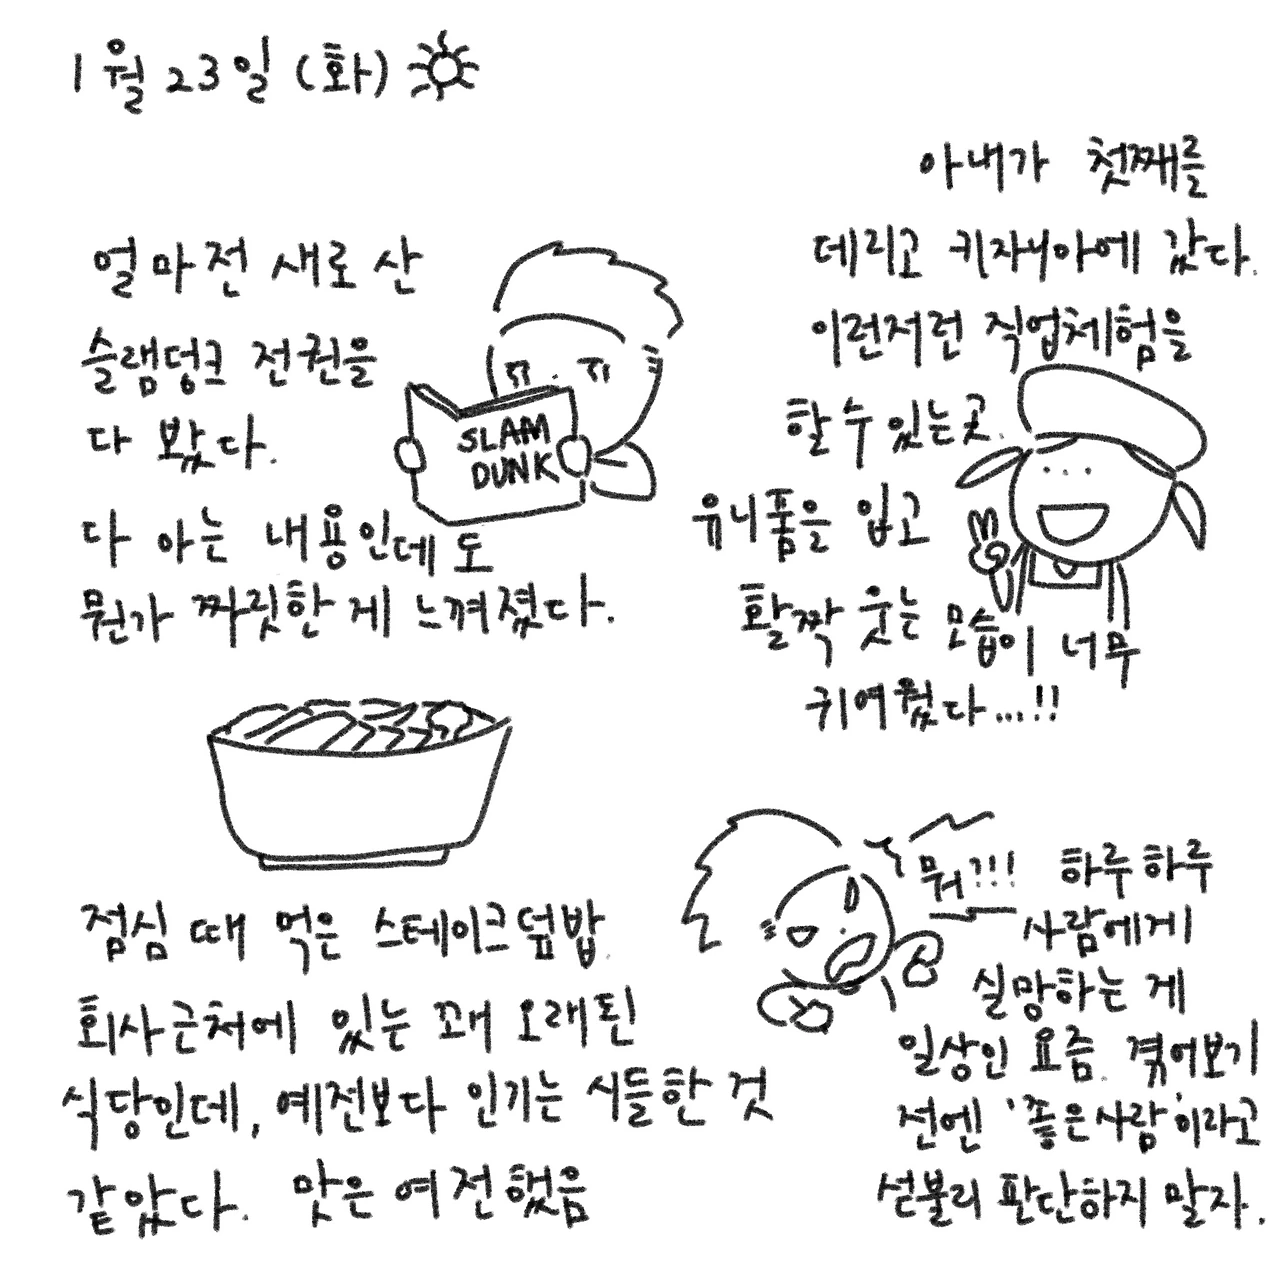 1월 23일 (화)
얼마전 새로 산
슬램덩크 전권을
다 봤다.
다 아는 내용인데도
뭔가 짜릿한 게 느껴졌다.
SLAM
DUNK
아내가 첫째를
데리고 키자니아에 갔다.
이런저런 직업체험을
할 수 있는 곳.
유니폼을 입고
활짝 웃는 모습이 너무
귀여웠다...!!
점심 때 먹은 스테이크덮밥.
회사근처에 있는 꽤 오래된
식당인데, 예전보다 인기는 시들한 것
같았다. 맛은 여전했음
뭐?!! 하루하루
사람에게
실망하는 게
일상인 요즘. 겪어보기
전엔 '좋은사람'이라고
섣불리 판단하지 말자.